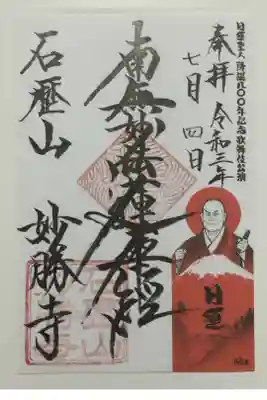 日蓮聖人 降誕八〇〇年記念 歌舞伎公演
奉拝 令和三年
七月 四日
南無妙法蓮華経
石歴山
妙勝寺
日蓮